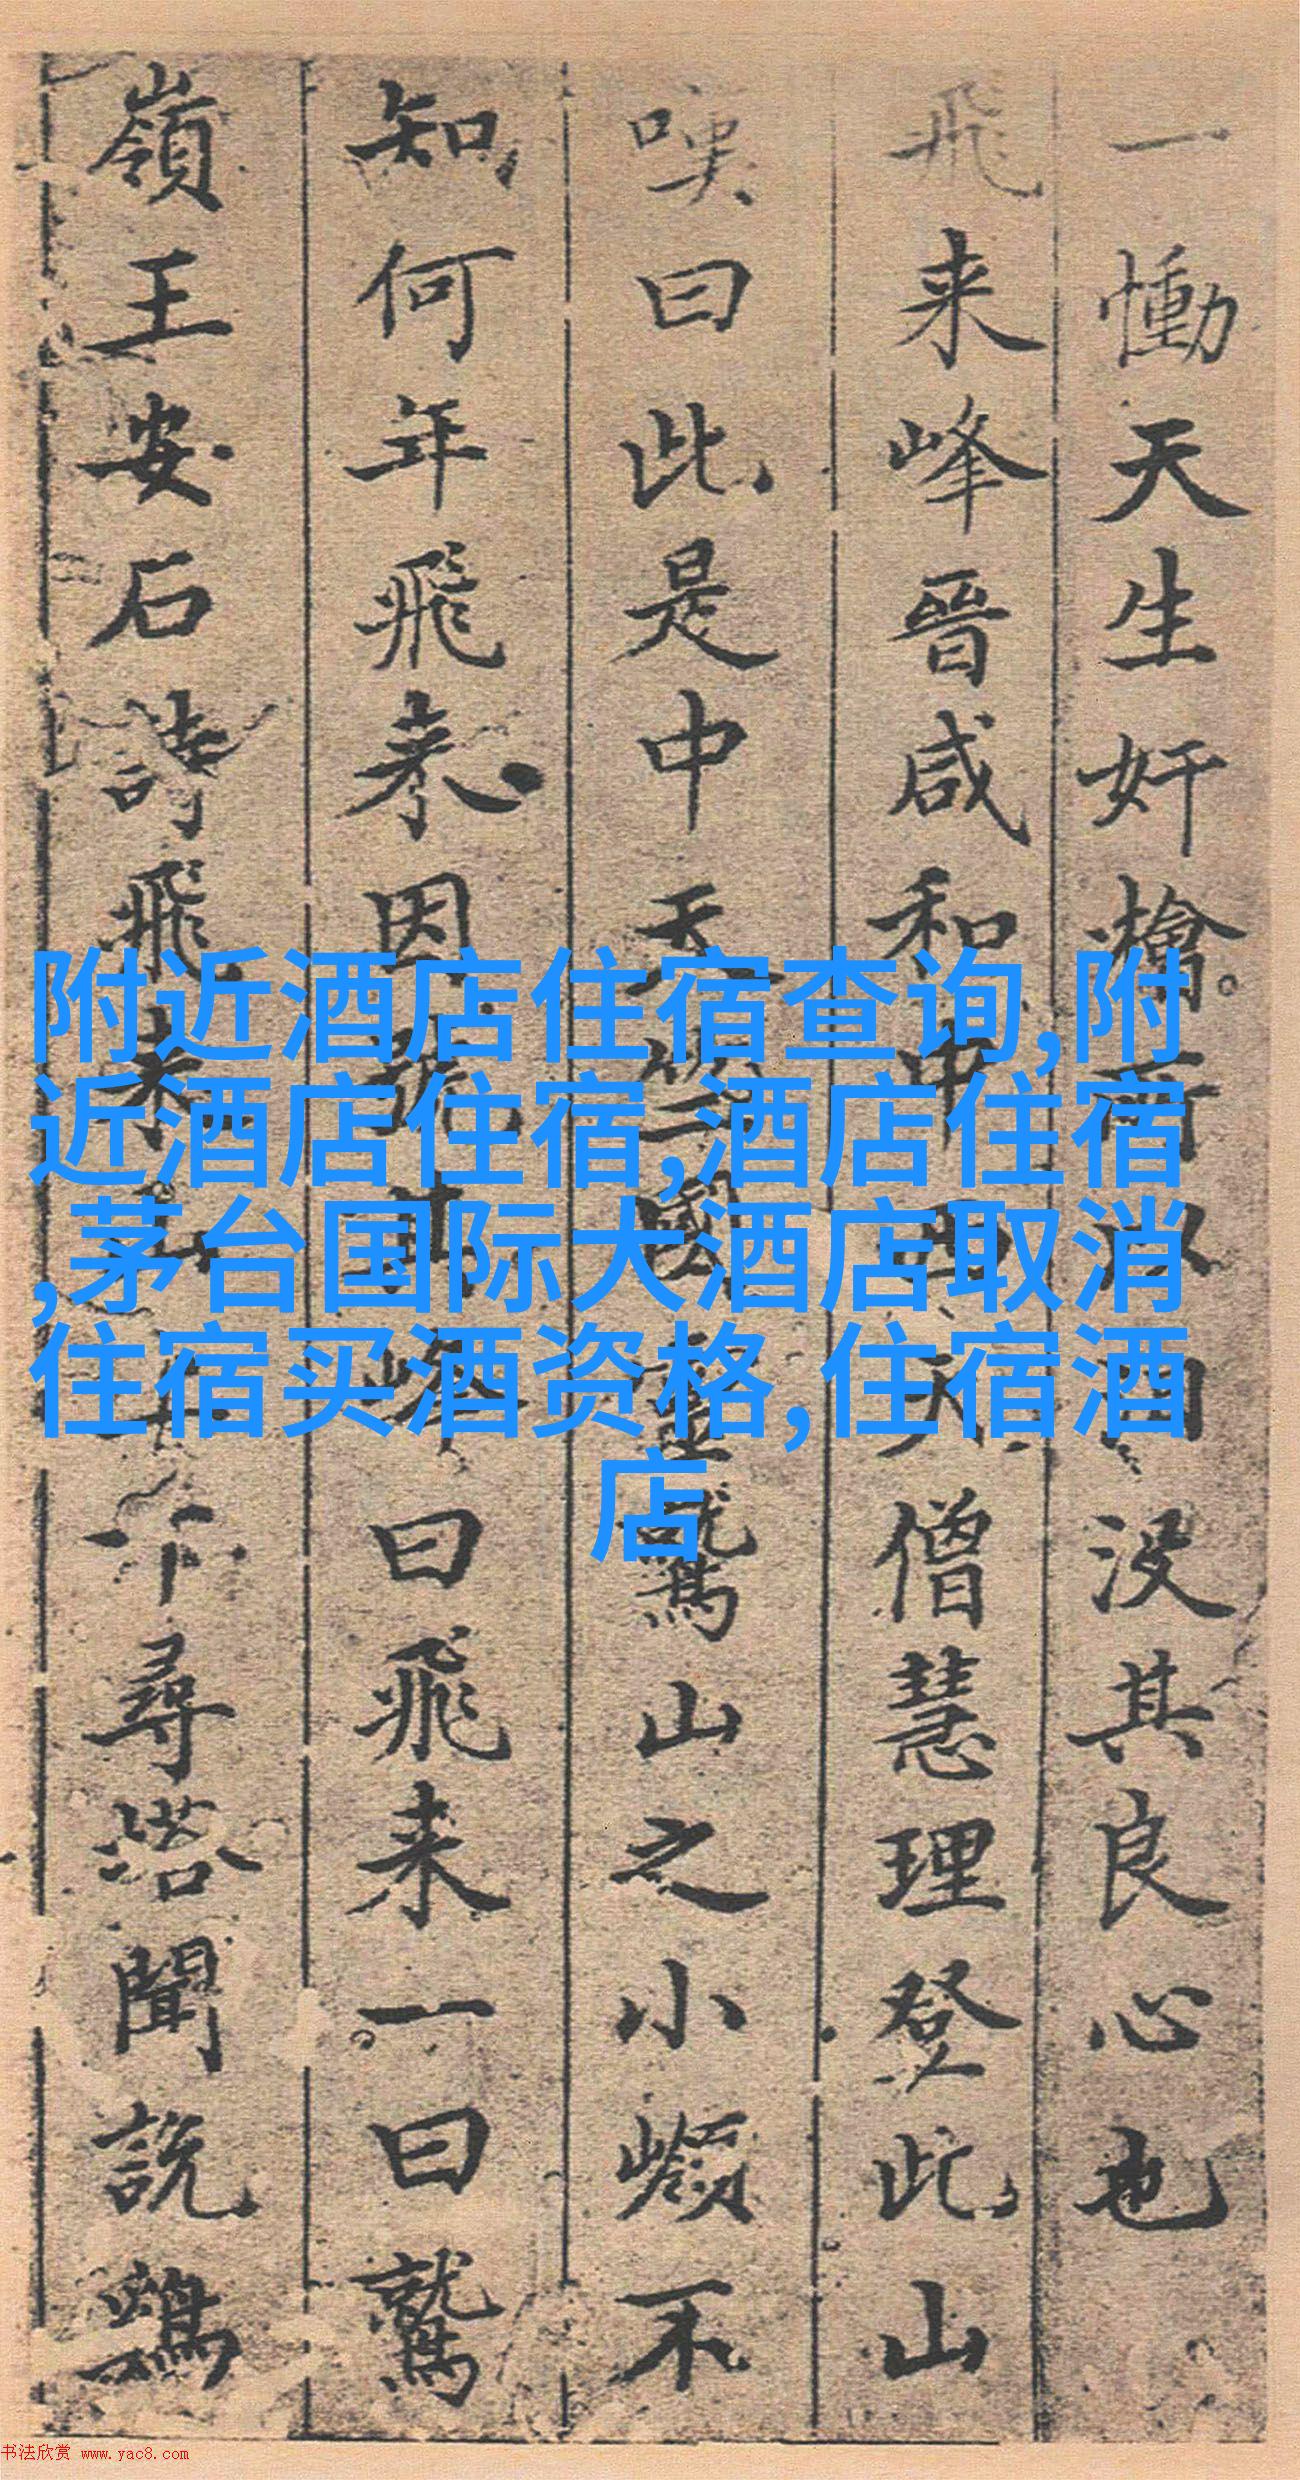 一慟天生奸檜
没其良心也
飛来峰晉咸和
僧慧理登此山
嘆曰此是中天
國靈鷲山之小嶺不
知何年飛来因
曰飛来一曰鷲
嶺王安石詩飛来
千尋塔聞說鷄
附近酒店住宿查询,附
近酒店住宿,酒店住宿
,茅台国际大酒店取消
住宿买酒资格,住宿酒
店
书法欣赏 www.yac8.com